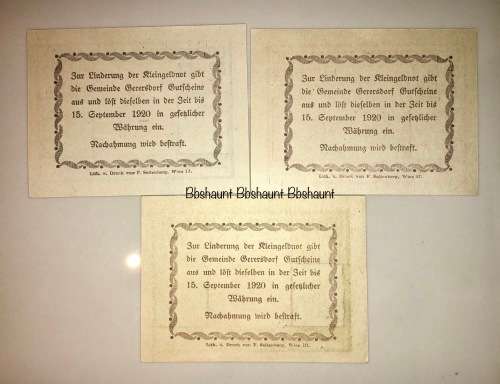 Zur Linderung der Kleingeldnot gibt
die Gemeinde Gerersdorf Gutscheine
aus und löst dieselben in der Zeit bis
15. September 1920 in gesetzlicher
Währung ein.
Nachahmung wird bestraft.
Lith. u. Druck von F. Seitenberg, Wien III.
Zur Linderung der Kleingeldnot gibt
die Gemeinde Gerersdorf Gutscheine
aus und löst dieselben in der Zeit bis
15. September 1920 in gesetzlicher
Währung ein.
Nachahmung wird bestraft.
Lith. u. Druck von F. Seitenberg, Wien III.
Bbshaunt Bbshaunt Bbshaunt
Zur Linderung der Kleingeldnot gibt
die Gemeinde Gerersdorf Gutscheine
aus und löst dieselben in der Zeit bis
15. September 1920 in gesetzlicher
Währung ein.
Nachahmung wird bestraft.
Lith. u. Druck von F. Seitenberg, Wien III.